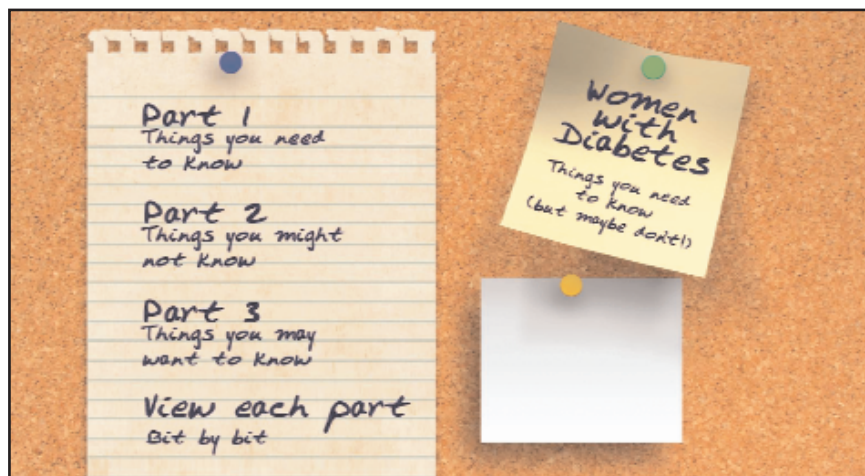 Part 1
Things you need
to know
Part 2
Things you might
not know
Part 3
Things you may
want to know
View each part
Bit by bit
Women
with
Diabetes
Things you need
to know
(but maybe don't!)